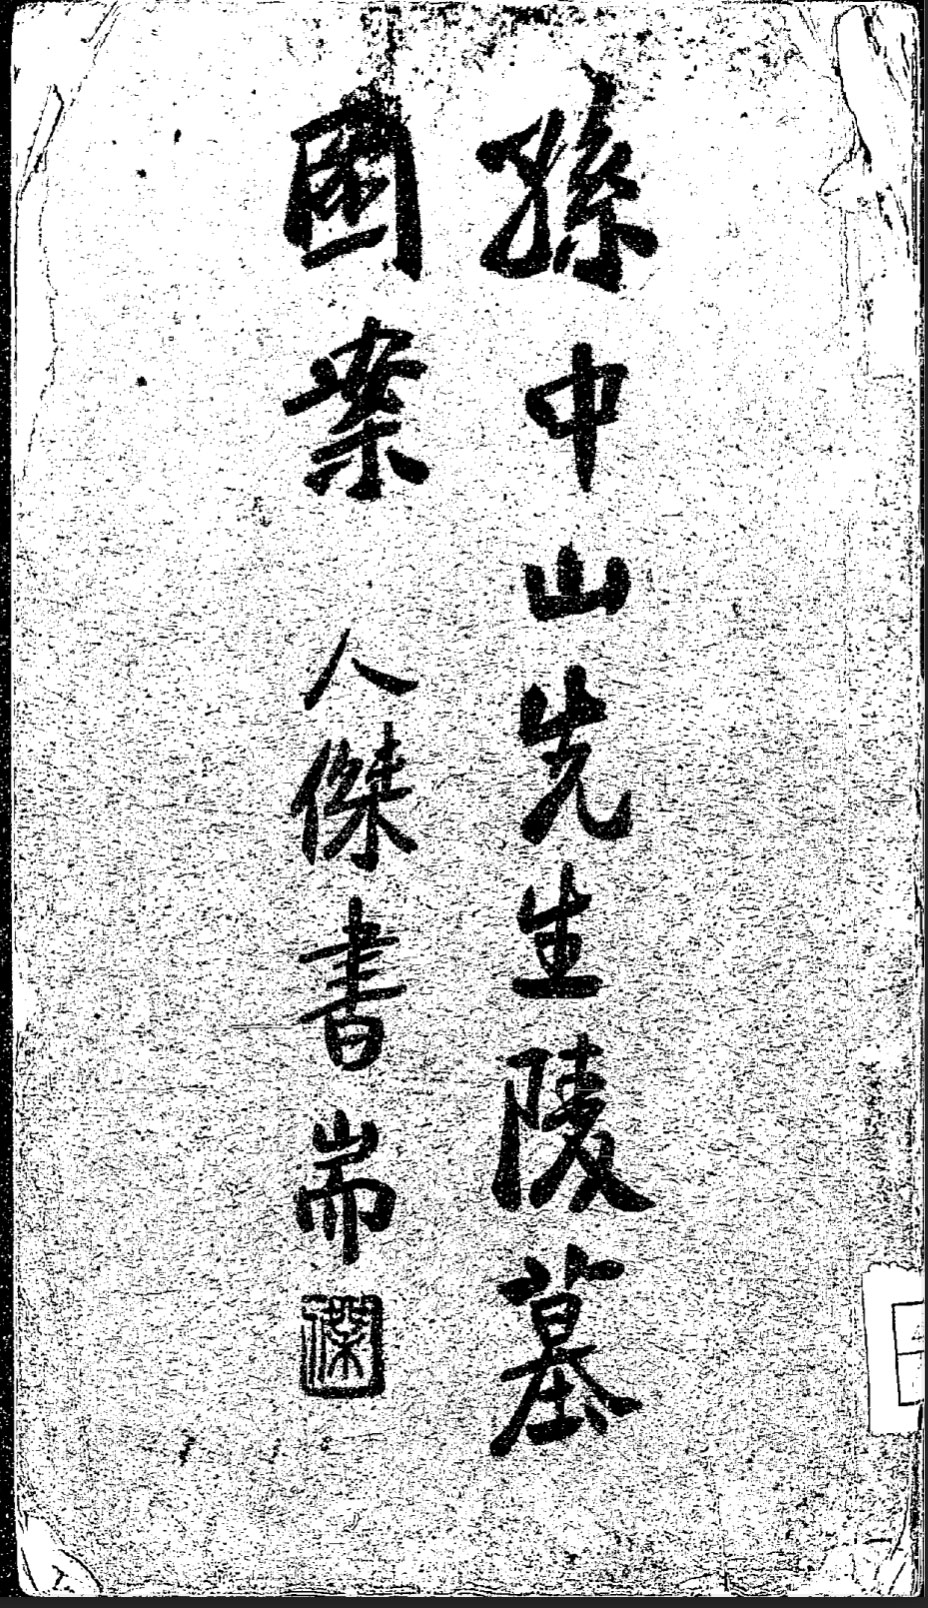 孫中山先生陵墓
圖案 人傑書耑
傑